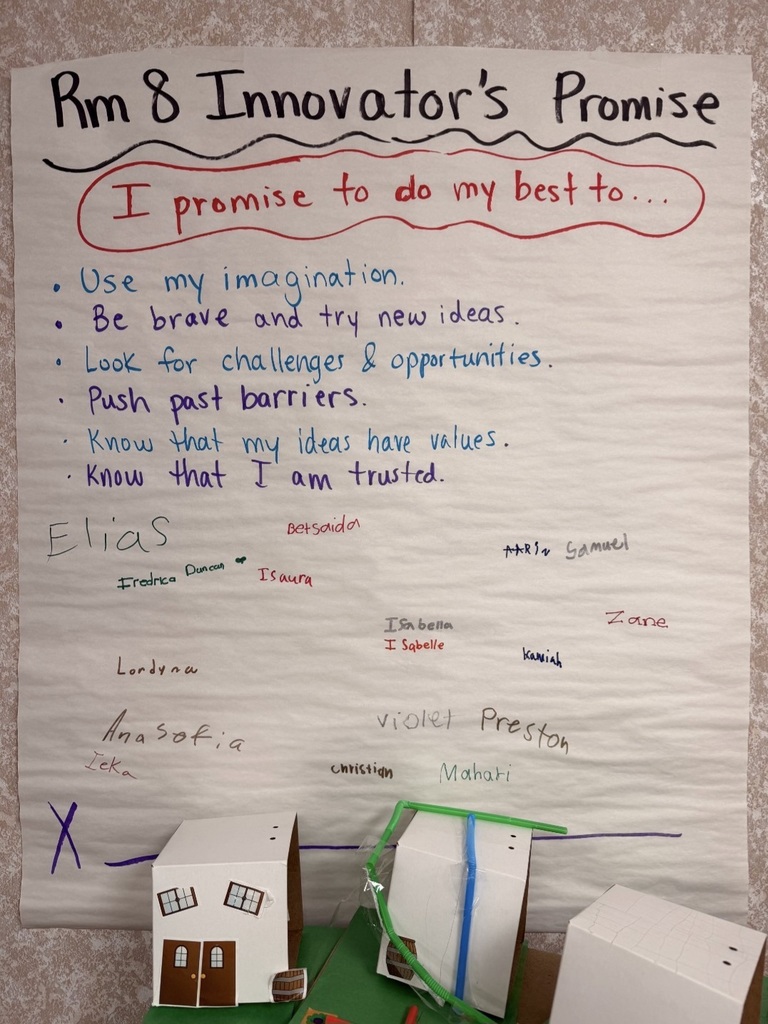 Rm 8 Innovator's Promise
I promise to do my best to...
• Use my imagination.
• Be brave and try new ideas.
• Look for challenges & opportunities.
• Push past barriers.
• Know that my ideas have values.
• Know that I am trusted.
Elias
Betsaida
AARIN Samuel
Fredrica Duncan
Isaura
Isabella
Zane
Isabelle
Kamiah
Lordyna
Ana Sofia
violet Preston
Ieka
christian
Mahari
X